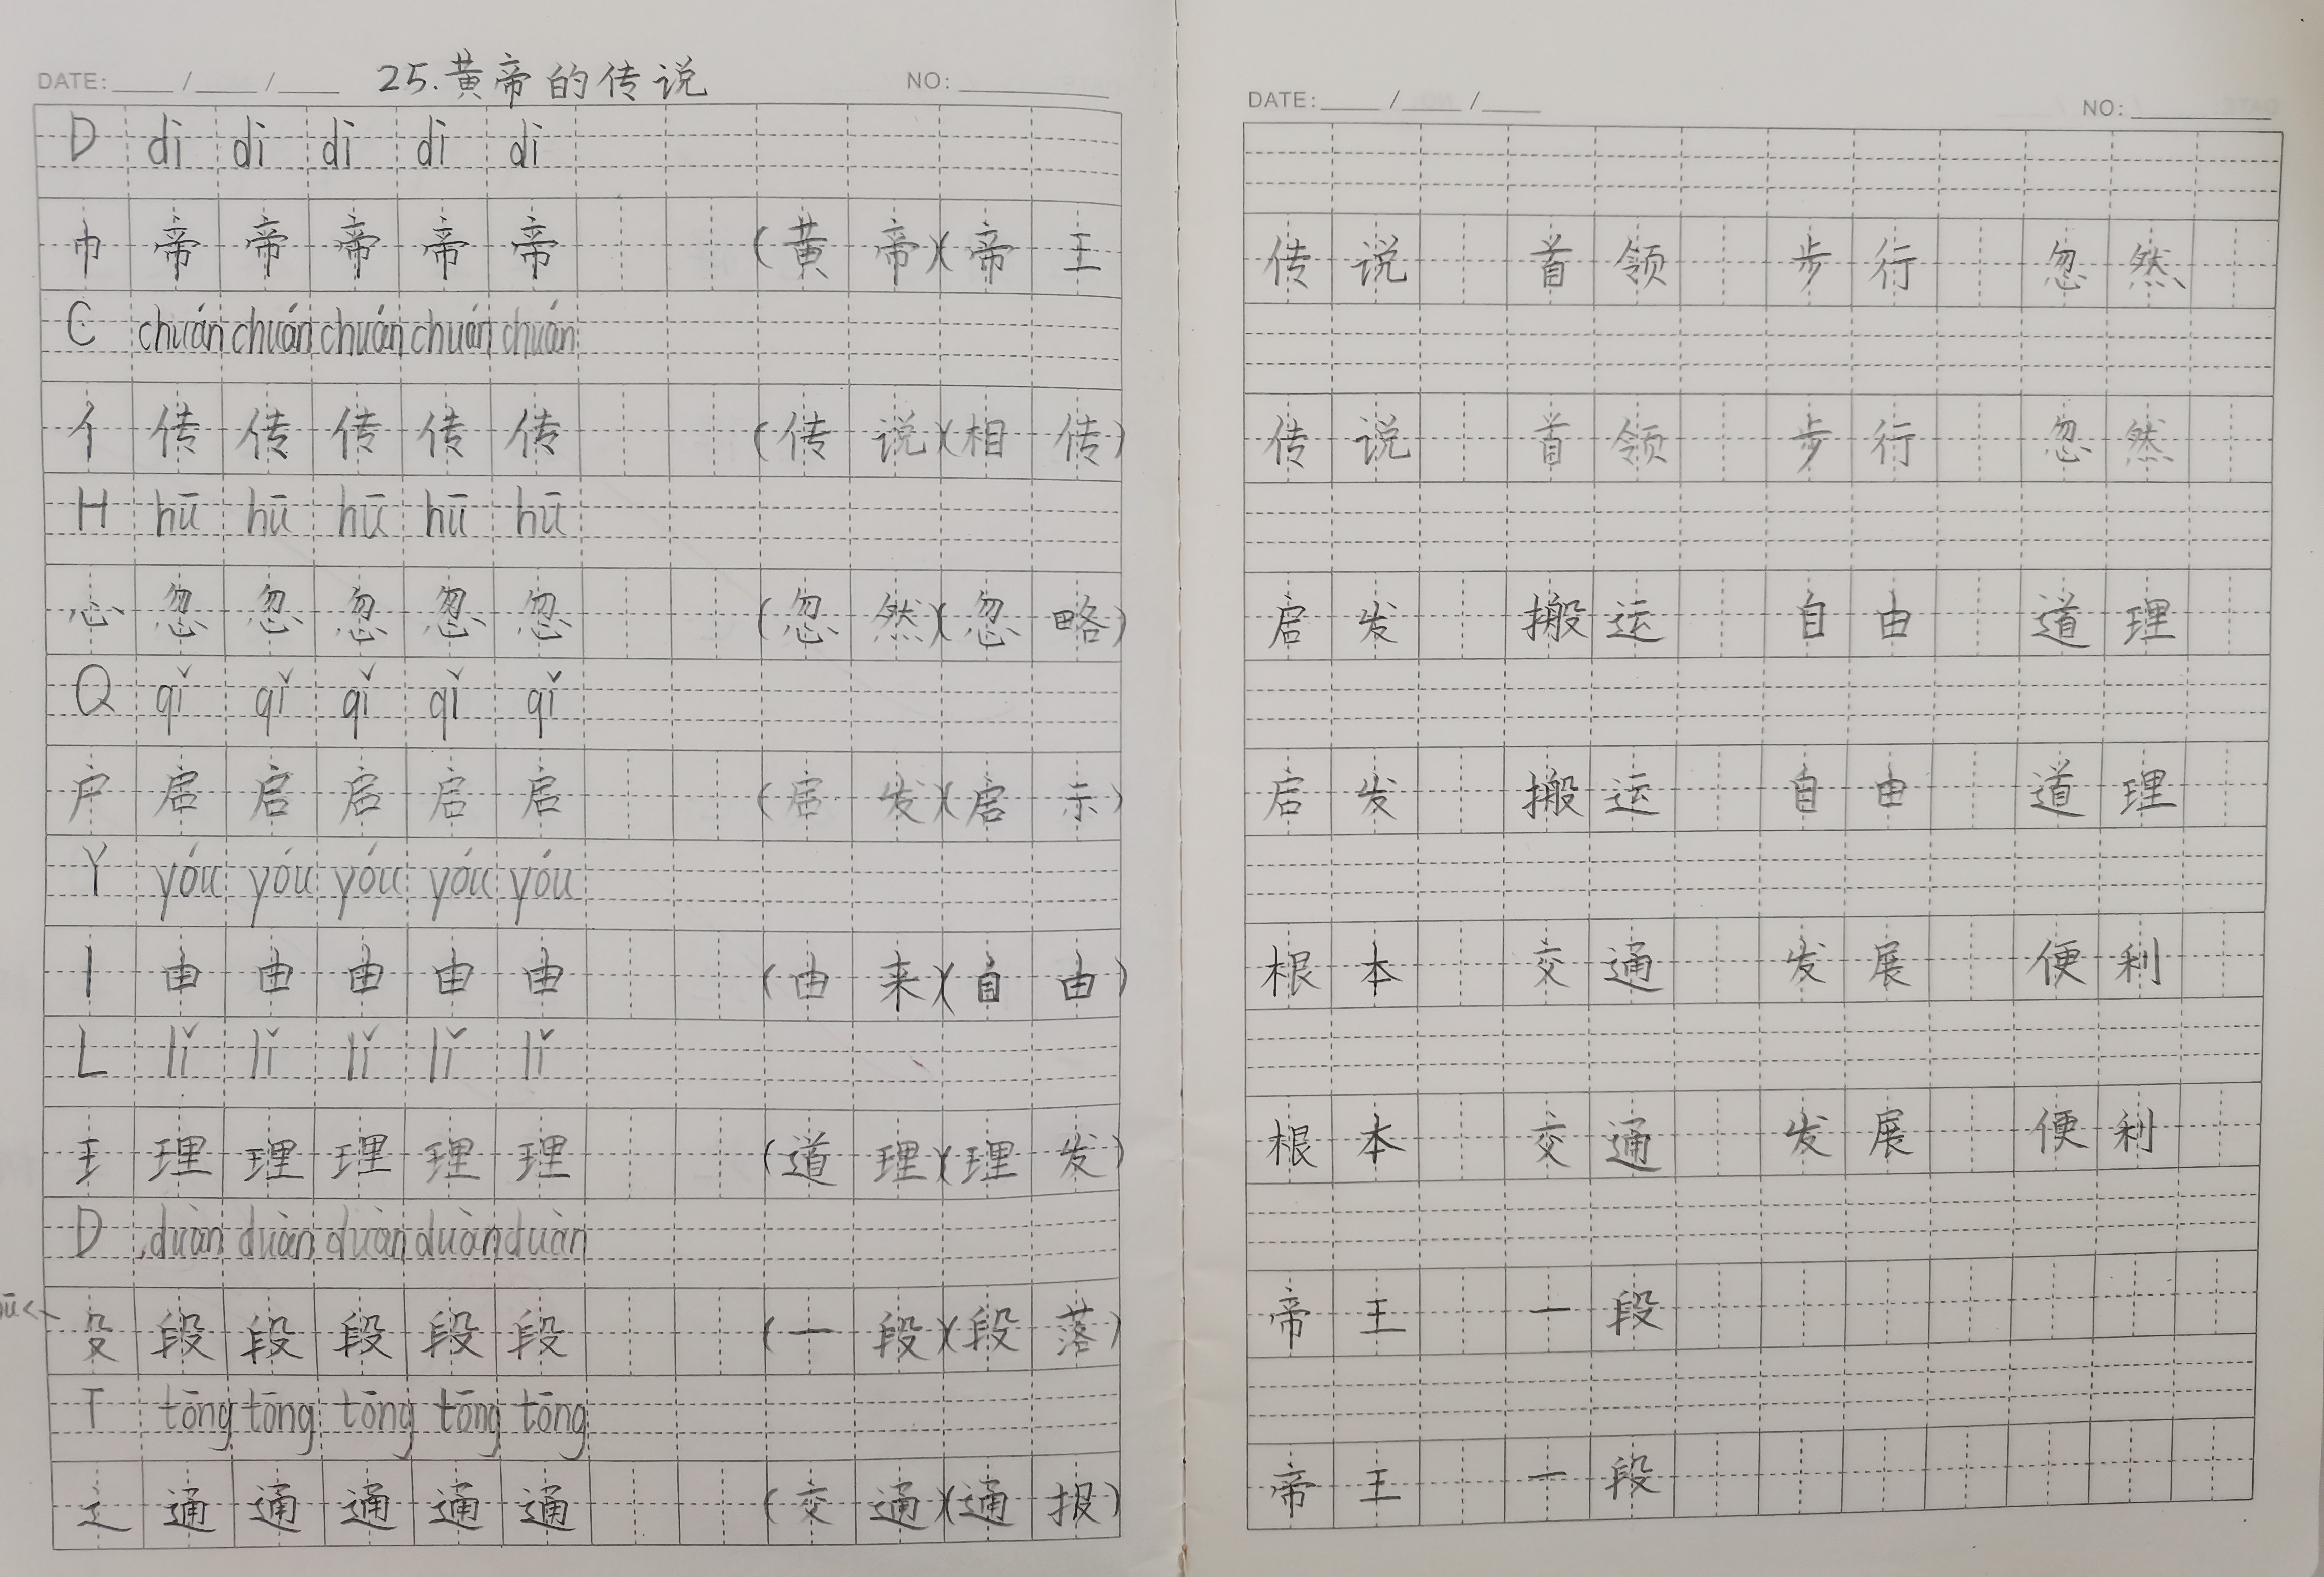 DATE: / / 25.黄帝的传说 NO:
D dì dì dì dì dì
巾 帝 帝 帝 帝 帝 (黄帝)(帝王
C chuán chuán chuán chuán chuán
亻 传 传 传 传 传 (传说)(相传)
H hū hū hū hū hū
心 忽 忽 忽 忽 忽 (忽然)(忽略)
Q qǐ qǐ qǐ qǐ qǐ
户 启 启 启 启 启 (启发)(启示)
Y yóu yóu yóu yóu yóu
丨 由 由 由 由 由 (由来)(自由)
L lǐ lǐ lǐ lǐ lǐ
王 理 理 理 理 理 (道理)(理发)
D duàn duàn duàn duàn duàn
殳 段 段 段 段 段 (一段)(段落)
T tōng tōng tōng tōng tōng
辶 通 通 通 通 通 (交通)(通报)
DATE: / / NO:
传说 首领 步行 忽然
传说 首领 步行 忽然
启发 搬运 自由 道理
启发 搬运 自由 道理
根本 交通 发展 便利
根本 交通 发展 便利
帝王 一段
帝王 一段